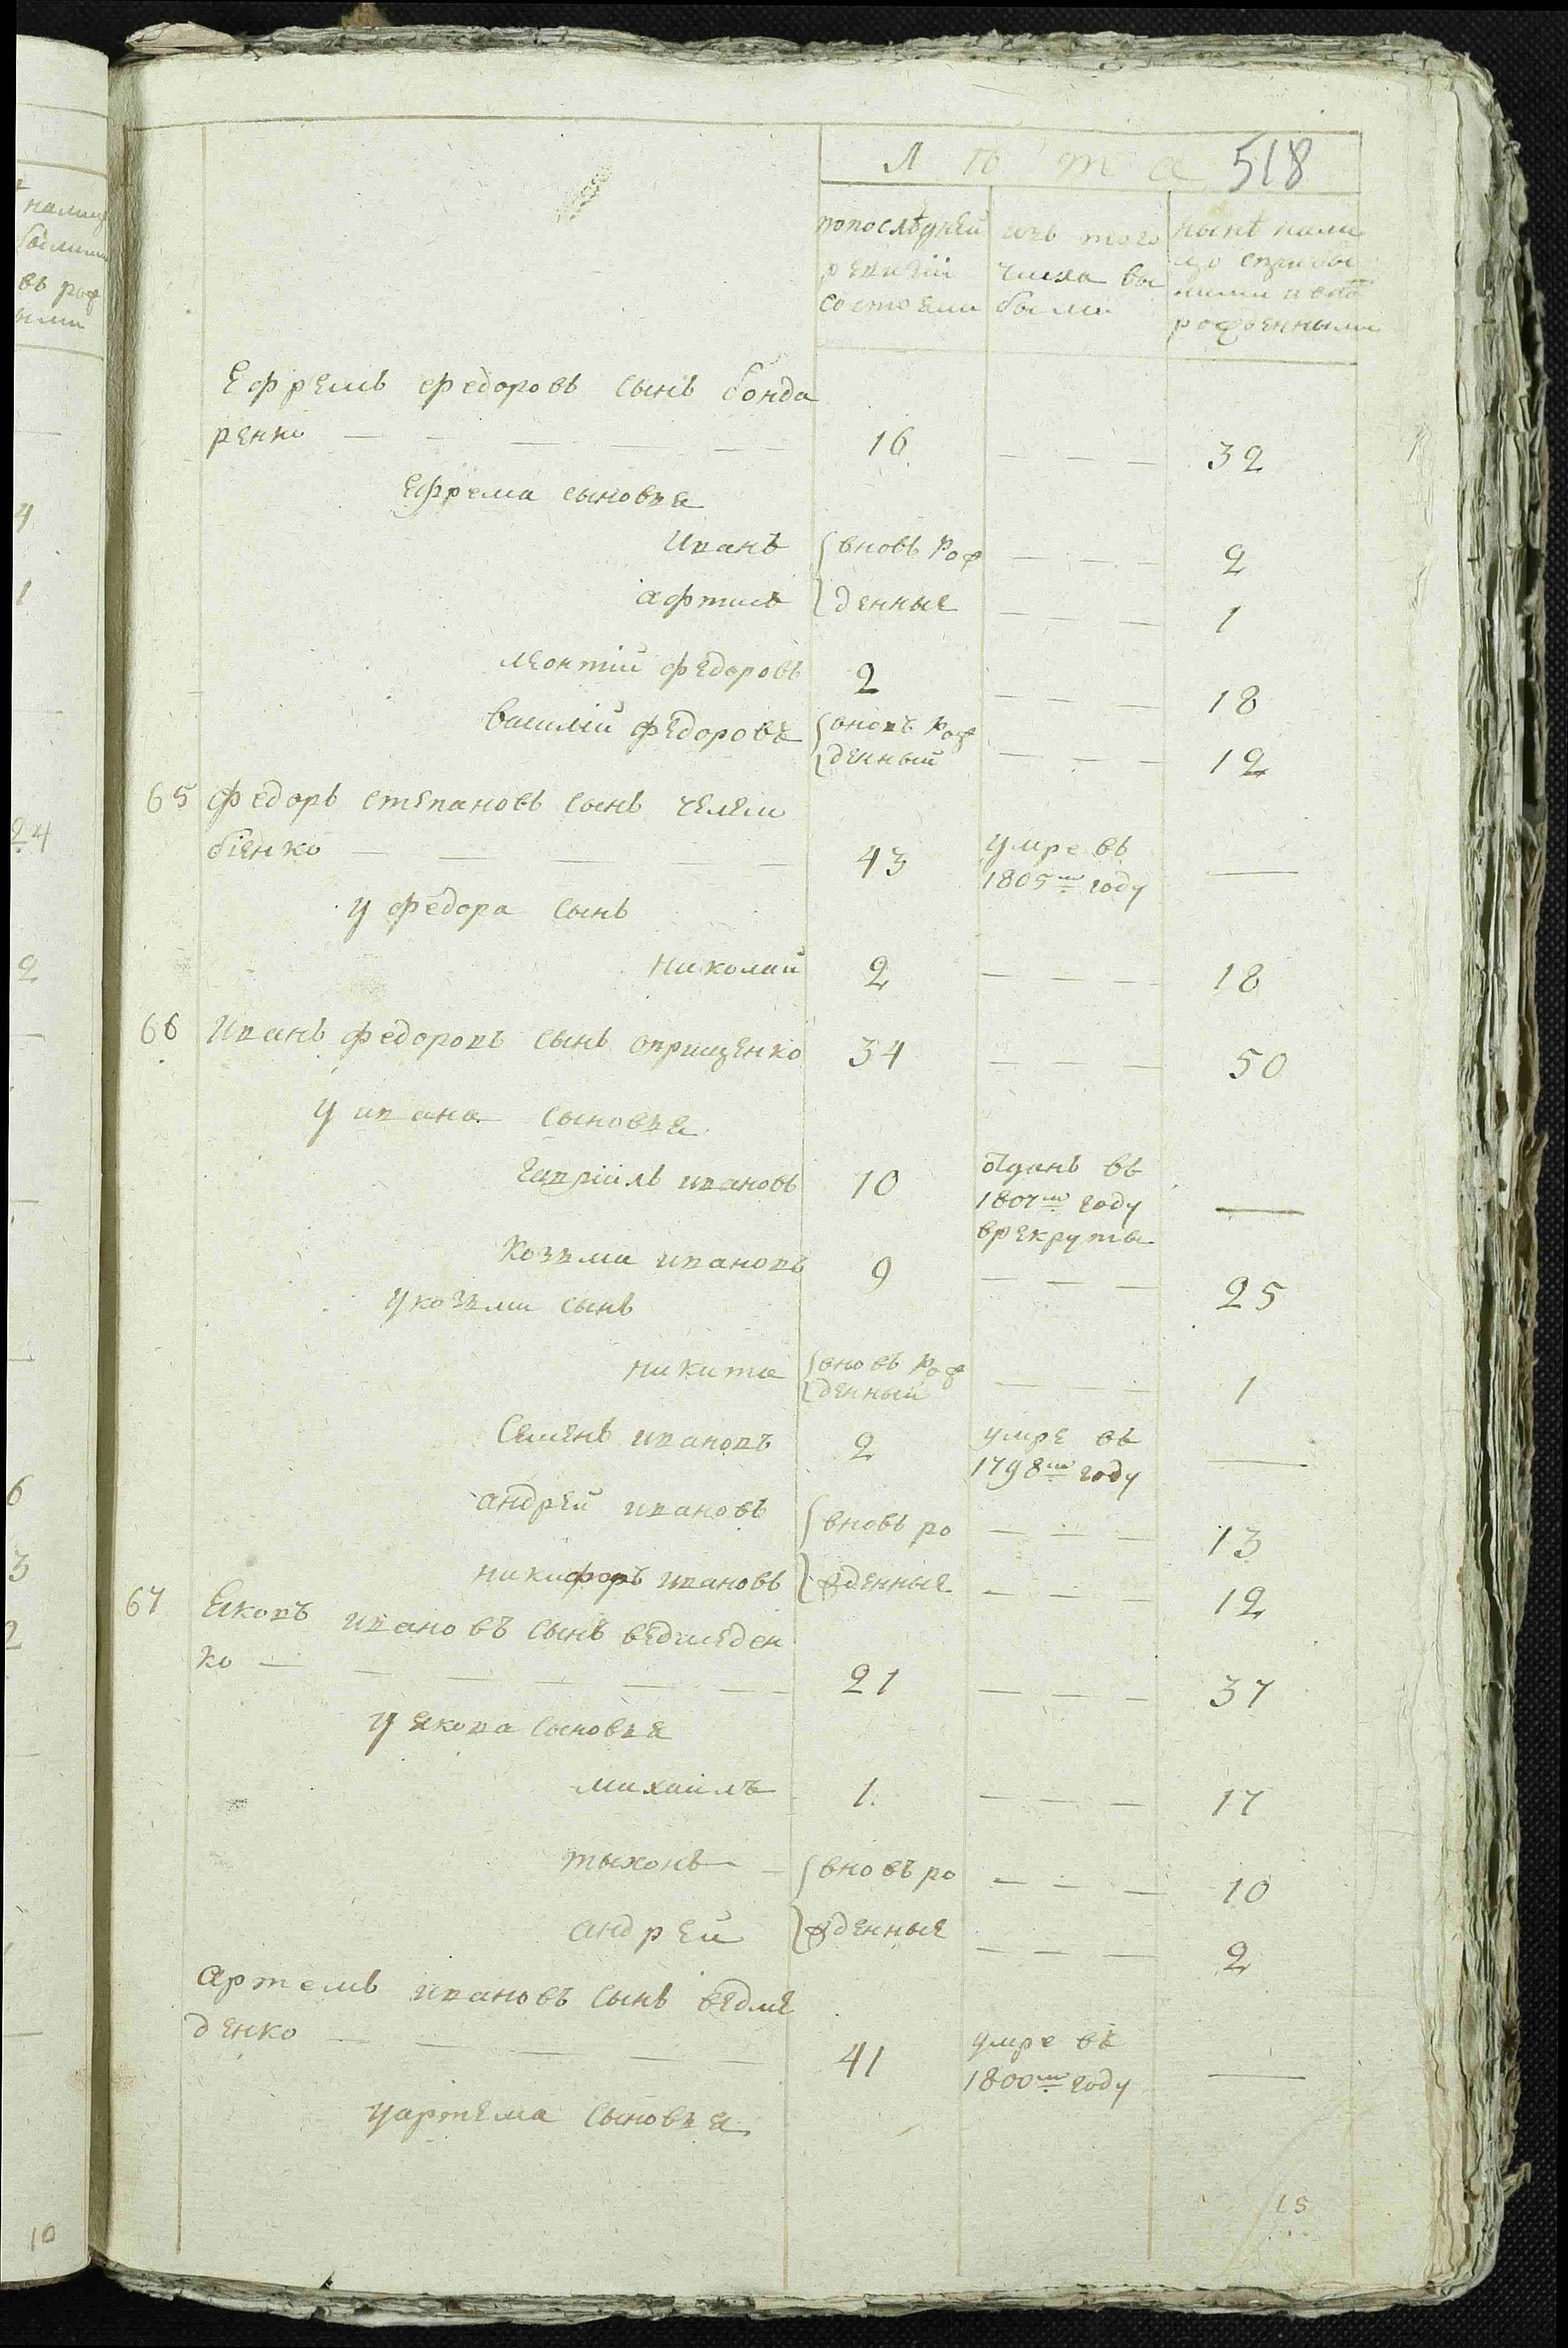 Лѣта 518
попослѣдней
ревизіи
состояли
изъ того
числа вы
были
нынѣ нали
цо сприбы
лыми и вно
рожденными
Ефремъ федоровъ сынъ бонда
ренко — — — — — 16 — — — 32
Ефрема сыновъя
Иванъ {вновь рож — — — 2
денные — — — 1
леонтій федоровъ 2 — — — 18
василій федоровъ {вновъ рож
{денный — — — 12
65 федоръ степановъ сынъ челем
біенко — — — — — 43 умре въ
1805м году —
у федора сынъ
николай 2 — — — 18
66 Иванъ федоровъ сынъ оприщенко 34 — — — 50
у ивана сыновъя
гавріилъ ивановъ 10 отданъ въ
1807м году —
врекруты
козъма ивановъ 9 — — — 25
у козъми сынъ
никита {вновъ рож
{денный — — — 1
Семенъ ивановъ 2 умре въ
1798м году —
андрей ивановъ {вновъ ро — — — 13
никифоръ ивановъ }жденные — — — 12
67 Яковъ ивановъ сынъ ведмеден
ко — — — — — — 21 — — — 37
у якова сыновъя
михаилъ 1. — — — 17
тыхонъ — {вновъ ро — — — 10
андрей }жденные — — — 2
артемъ ивановъ сынъ ведме
денко — — — — — 41 умре въ
1800м году —
у артема сыновъя
15
налиц
былими
въ рож
ными
4
1
24
2
6
3
2
10